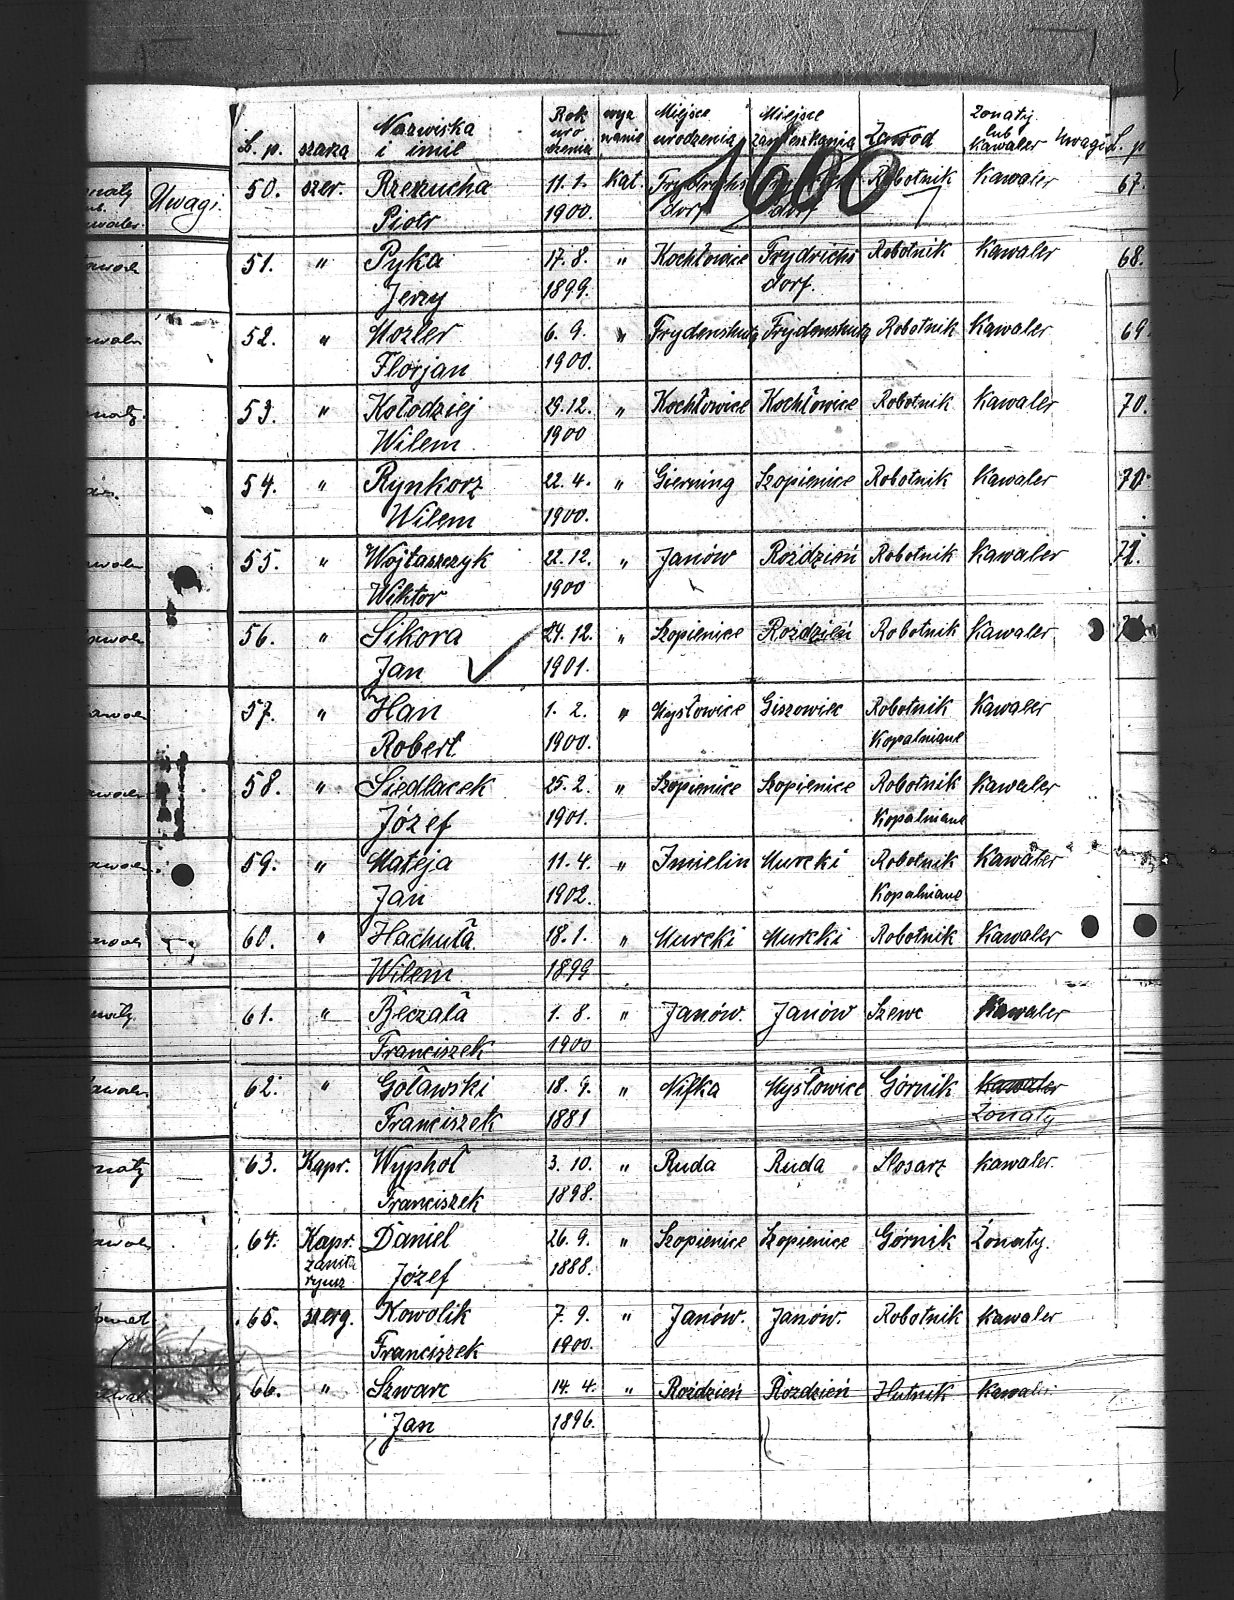 L. p. szarża Nazwiska i imie Rok uro dzenia wyz nanie Miejsce urodzenia Miejsce zamieszkania Zawód Żonaty lub Kawaler Uwagi L. p
1600
Uwagi.
50. szer. Rzezucha 11.1. Kat. Frydrichs Robotnik Kawaler 67.
Piotr 1900. dorf dorf
51. " Pyka 17.8. " Kochłowice Frydrichs Robotnik Kawaler 68.
Jerzy 1899. dorf.
52. " Mozler 6.9. " Frydenshutą Frydenshutą Robotnik Kawaler 69
Florjan 1900.
53. " Kołodziej 29.12. " Kochłowice Kochłowice Robotnik Kawaler 70.
Wilem 1900
54. " Rynkorz 22.4. " Gierning Szopienice Robotnik Kawaler 70.
Wilem 1900.
55. " Wojtaszczyk 22.12. " Janów Roździeń Robotnik Kawaler 71.
Wiktor 1900
56. " Sikora 24.12. " Szopienice Roździeń Robotnik Kawaler
Jan 1901.
57. " Han 1.2. " Mysłowice Giszowiec Robotnik Kawaler
Robert 1900. Kopalniane
58. " Siedlacek 25.2. " Szopienice Szopienice Robotnik Kawaler
Józef 1901. Kopalniane
59. " Mateja 11.4. " Imielin Murcki Robotnik Kawaler
Jan 1902. Kopalniane
60. " Hachuła 18.1. " Murcki Murcki Robotnik Kawaler
Wilem 1899
61. " Beczała 1.8. " Janów. Janów Szewc Kawaler
Franciszek 1900
62. " Goławski 18.9. " Nifka Mysłowice Górnik Kawaler
Franciszek 1881 Żonaty
63. Kapr. Wyphoł 3.10. " Ruda Ruda Slosarz Kawaler.
Franciszek 1898.
64. Kapr. Daniel 26.9. " Szopienice Szopienice Górnik Żonaty.
zanita rjusz Józef 1888.
65. szerg. Kowolik 7.9. " Janów. Janów. Robotnik Kawaler
Franciszek 1900.
66. " Szwarc 14.4. " Roździeń Roździeń Hutnik Kawaler
Jan 1896.